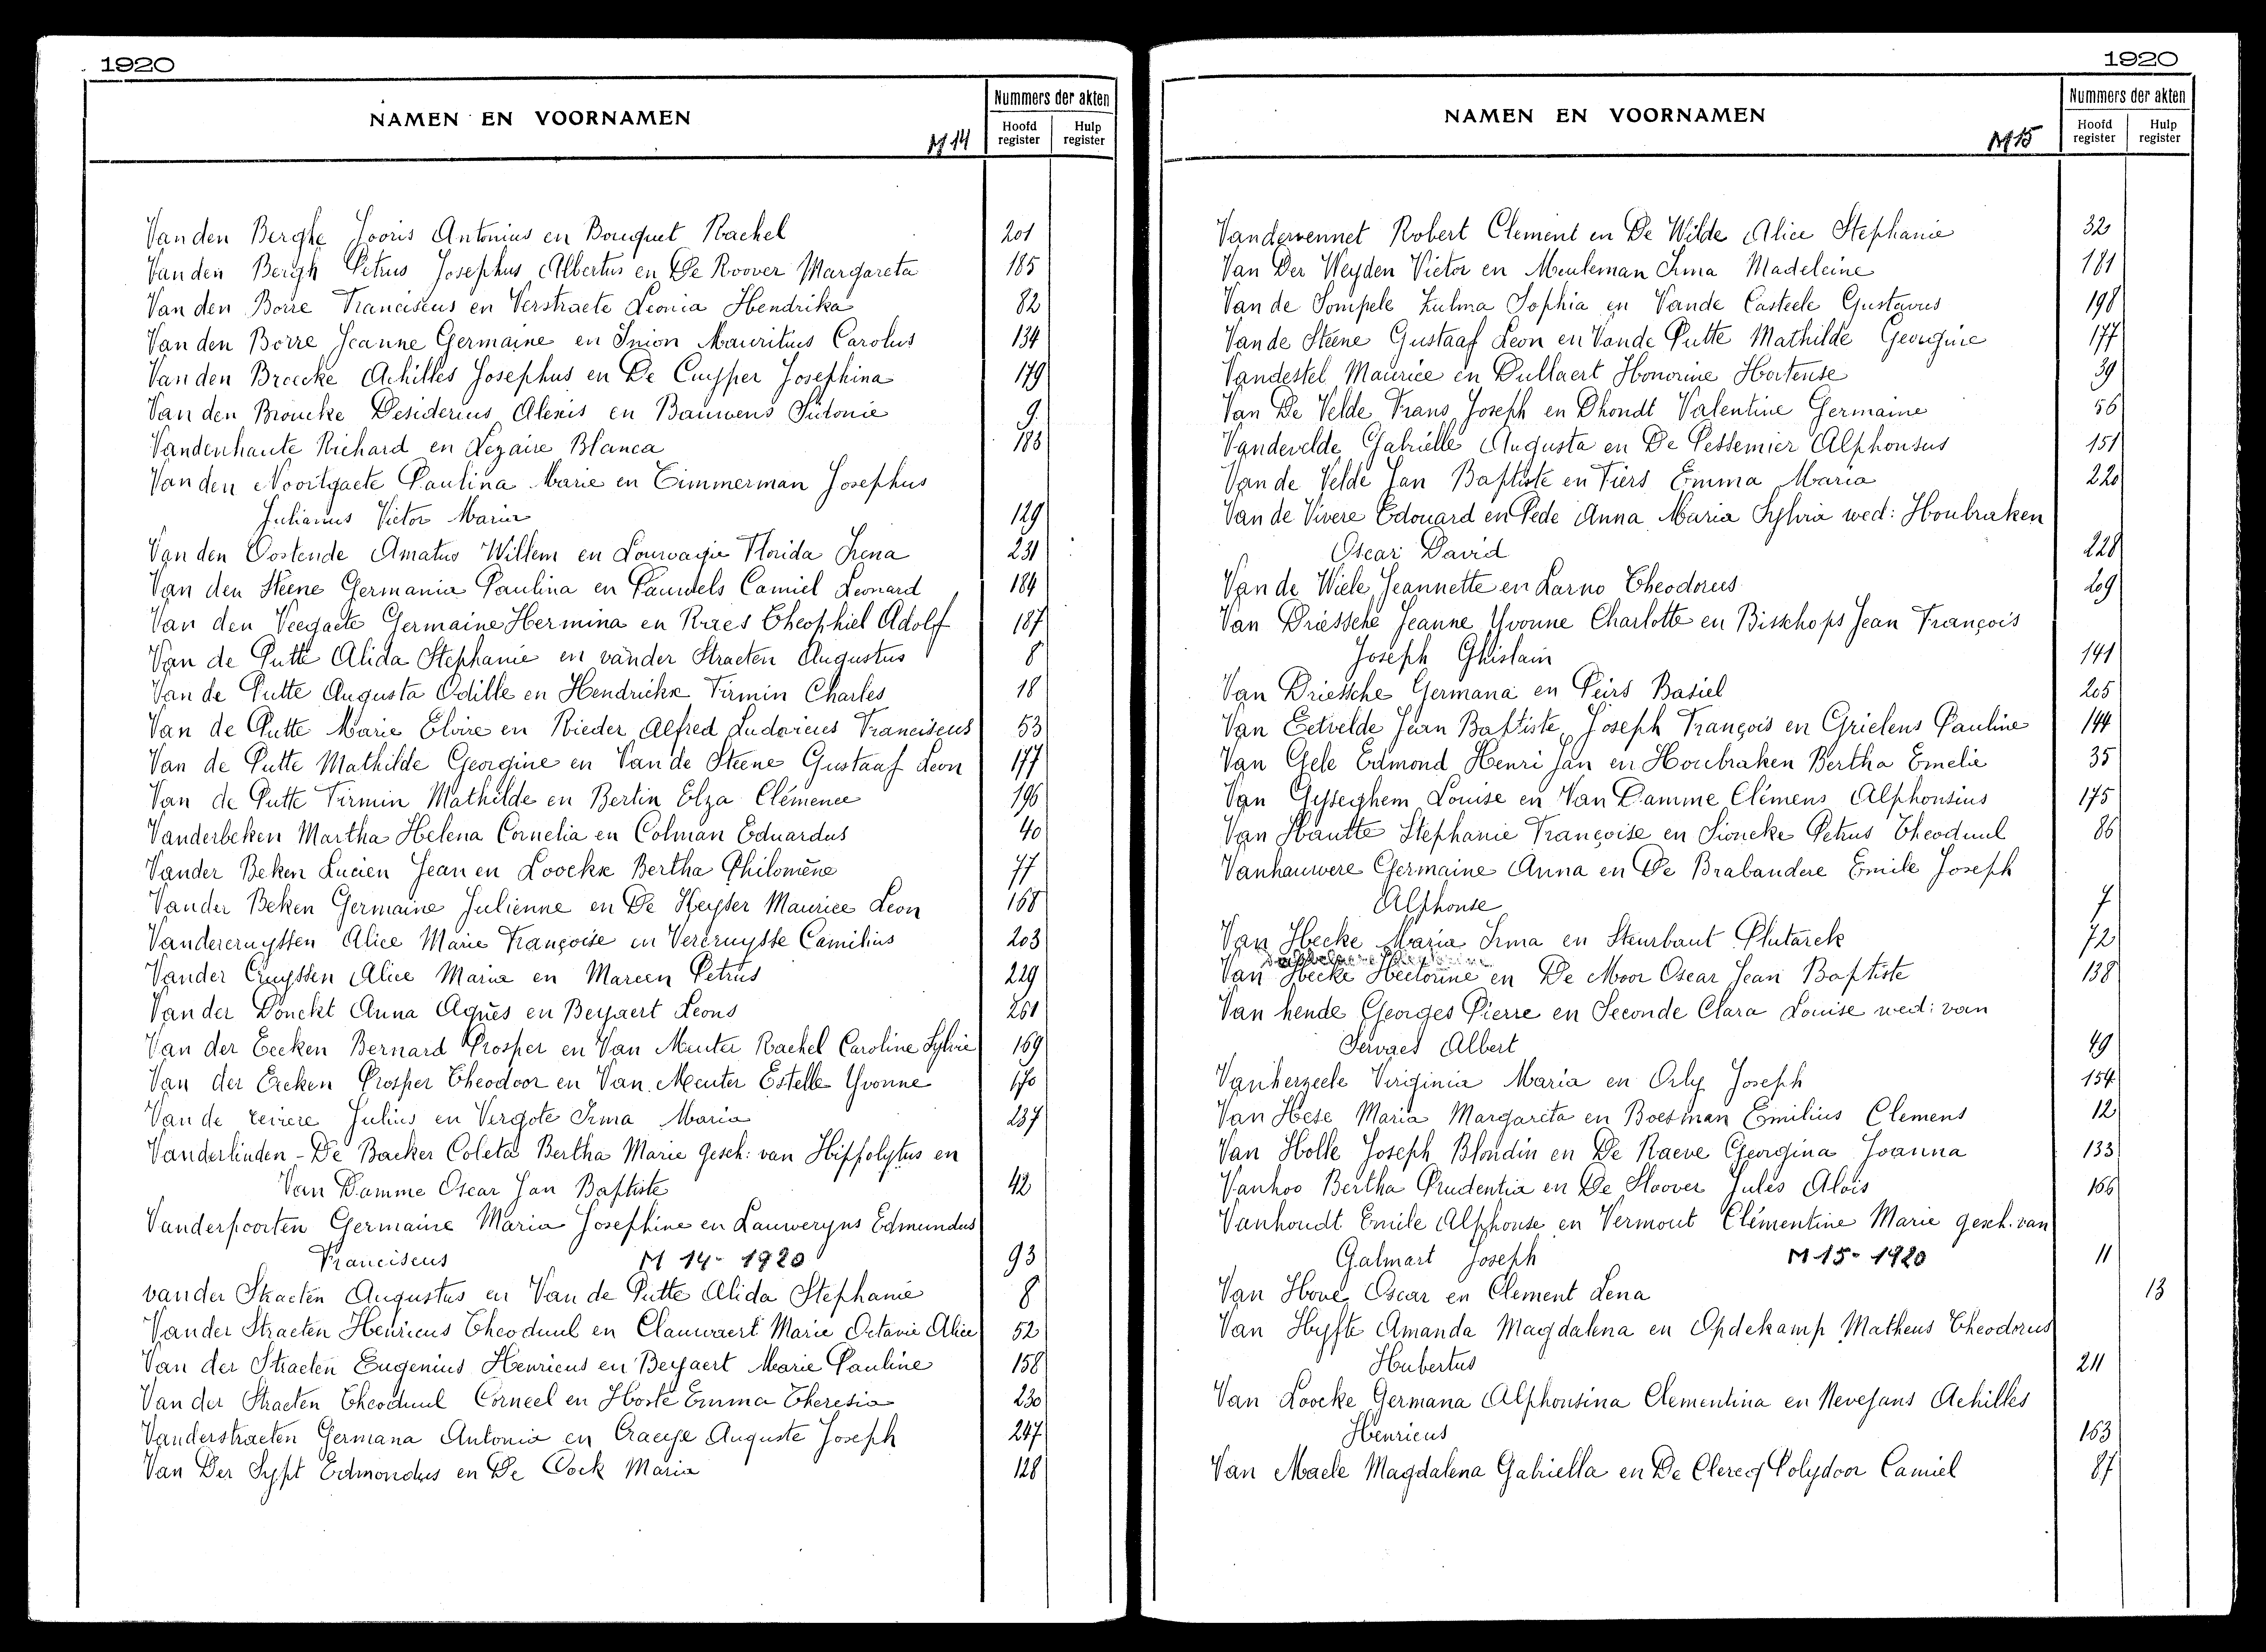 1920
NAMEN EN VOORNAMEN
M 14
Nummers der akten
Hoofd register
Hulp register
Van den Berghe Jooris Antonius en Bouquet Rachel 201
Van den Bergh Petrus Josephus Albertus en De Roover Margareta 185
Van den Borre Franciscus en Verstraete Leonia Hendrika 82
Van den Borre Jeanne Germaine en Inion Mauritius Carolus 134
Van den Broecke Achilles Josephus en De Cuyper Josephina 179
Van den Broucke Desiderius Alexis en Bauwens Sidonie 9.
Vandenhaute Richard en Lezaire Blanca 183
Van den Noortgaete Paulina Marie en Timmerman Josephus
Julianus Victor Maria 129
Van den Oostende Amatus Willem en Florida Irena 231
Van den Steene Germania Paulina en Pauwels Camiel Leonard 184
Van den Veegaete Germaine Hermina en Raes Theophiel Adolf 187
Van de Putte Alida Stephanie en vander Straeten Augustus 8
Van de Putte Augusta Odille en Hendrickx Firmin Charles 18
Van de Putte Marie Elvire en Rieder Alfred Ludovicus Franciscus 53
Van de Putte Mathilde Georgine en Van de Steene Gustaaf Leon 177
Van de Putte Firmin Mathilde en Bertin Elza Clémence 196
Vanderbeken Martha Helena Cornelia en Colman Eduardus 40
Vander Beken Lucien Jean en Loockx Bertha Philomène 77
Vander Beken Germaine Julienne en De Keyser Maurice Leon 168
Vandercruyssen Alice Marie Françoise en Vercruysse Camilius 203
Vander Cruyssen Alice Maria en Mareen Petrus 229
Van der Donckt Anna Agnès en Beyaert Leons 261
Van der Eecken Bernard Prosper en Van Menter Rachel Caroline Sylvie 169
Van der Eecken Prosper Theodoor en Van Menter Estelle Yvonne 170
Van de reviere Julius en Vergote Irma Maria 237
Vanderlinden - De Backer Coleta Bertha Marie gesch: van Hippolytus en
Van Damme Oscar Jan Baptiste 42
Vanderpoorten Germaine Maria Josephine en Lauweryns Edmundus
Franciscus M 14- 1920 93
vander Straeten Augustus en Van de Putte Alida Stephanie 8
Vander Straeten Henricus Theoduul en Clauwaert Marie Octavie Alice 52
Van der Straeten Eugenius Henricus en Beyaert Marie Pauline 158
Van der Straeten Theoduul Corneel en Hoste Emma Theresia 230
Vanderstraeten Germana Antonia en Craeye Auguste Joseph 247
Van Der Sypt Edmondus en De Cock Maria 128
1920
NAMEN EN VOORNAMEN
M 15
Nummers der akten
Hoofd register
Hulp register
Vandervennet Robert Clement en De Wilde Alice Stephanie 32
Van Der Weyden Victor en Meuleman Irma Madeleine 181
Van de Sompele Zulma Sophia en Vande Casteele Gustavus 198
Van de Steene Gustaaf Leon en Vande Putte Mathilde Georgine 177
Vandestel Maurice en Dullaert Honorine Hortense 39
Van De Velde Frans Joseph en Dhondt Valentine Germaine 56
Vandevelde Gabriëlle Augusta en De Pessemier Alphonsus 151
Van de Velde Jan Baptiste en Tiers Emma Maria 220
Van de Vivere Edouard en Pede Anna Maria Sylvia wed: Houbraken
Oscar David 228
Van de Wiele Jeannette en Larno Theodorus 209
Van Driessche Jeanne Yvonne Charlotte en Bisschops Jean François
Joseph Ghislain 141
Van Driessche Germana en Peirs Basiel 205
Van Eetvelde Jean Baptiste Joseph François en Grielens Pauline 144
Van Gele Edmond Henri Jan en Houbraken Bertha Emelie 35
Van Gysseghem Louise en Van Damme Clémens Alphonsius 175
Van Hautte Stephanie Françoise en Sioncke Petrus Theoduul 86
Vanhauwere Germaine Anna en De Brabandere Emile Joseph
Alphonse 7
Van Hecke Maria Irma en Steurbaut Plutarck 72
Van Hecke Hectorine en De Moor Oscar Jean Baptiste 138
Van hende Georges Pierre en Seconde Clara Louise wed: van
Servaes Albert 49
Vanherzeele Virginia Maria en Orly Joseph 154
Van Hese Maria Margareta en Boesman Emilius Clemens 12
Van Holle Joseph Blondin en De Raeve Georgina Joanna 133
Vanhoo Bertha Prudentia en De Sloover Jules Aloïs 166
Vanhoudt Emile Alphonse en Vermout Clémentine Marie gesch. van
Galmart Joseph M 15- 1920 11
Van Hove Oscar en Clement Lena 13
Van Hyfte Amanda Magdalena en Opdekamp Matheus Theodorus
Hubertus 211
Van Loocke Germana Alphonsina Clementina en Nevejans Achilles
Henricus 163
Van Maele Magdalena Gabriella en De Clercq Polydoor Camiel 87